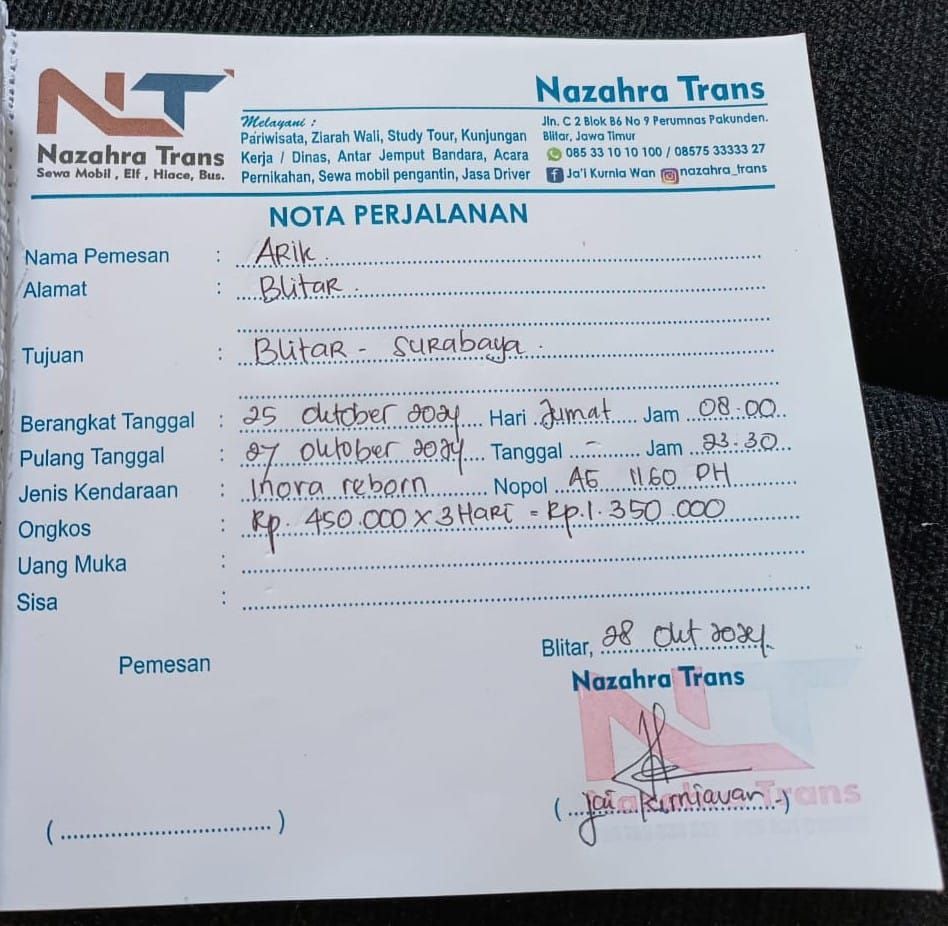 NT
Nazahra Trans
Sewa Mobil , Elf , Hiace, Bus.
Melayani :
Pariwisata, Ziarah Wali, Study Tour, Kunjungan
Kerja / Dinas, Antar Jemput Bandara, Acara
Pernikahan, Sewa mobil pengantin, Jasa Driver
Nazahra Trans
Jln. C 2 Blok B6 No 9 Perumnas Pakunden.
Blitar, Jawa Timur
085 33 10 10 100 / 08575 33333 27
Ja'i Kurnia Wan nazahra_trans
NOTA PERJALANAN
Nama Pemesan : ARIK.
Alamat : Blitar.
Tujuan : Blitar - Surabaya.
Berangkat Tanggal : 25 Oktober 2024 Hari Jumat Jam 08:00
Pulang Tanggal : 27 Oktober 2024 Tanggal - Jam 23.30
Jenis Kendaraan : Inova reborn Nopol AG 1160 PH
Ongkos : Rp. 450.000 X 3 HARI = Rp.1.350.000
Uang Muka :
Sisa :
Blitar, 28 Okt 2024
Pemesan
Nazahra Trans
(Jai Kurniawan)
Trans
( )